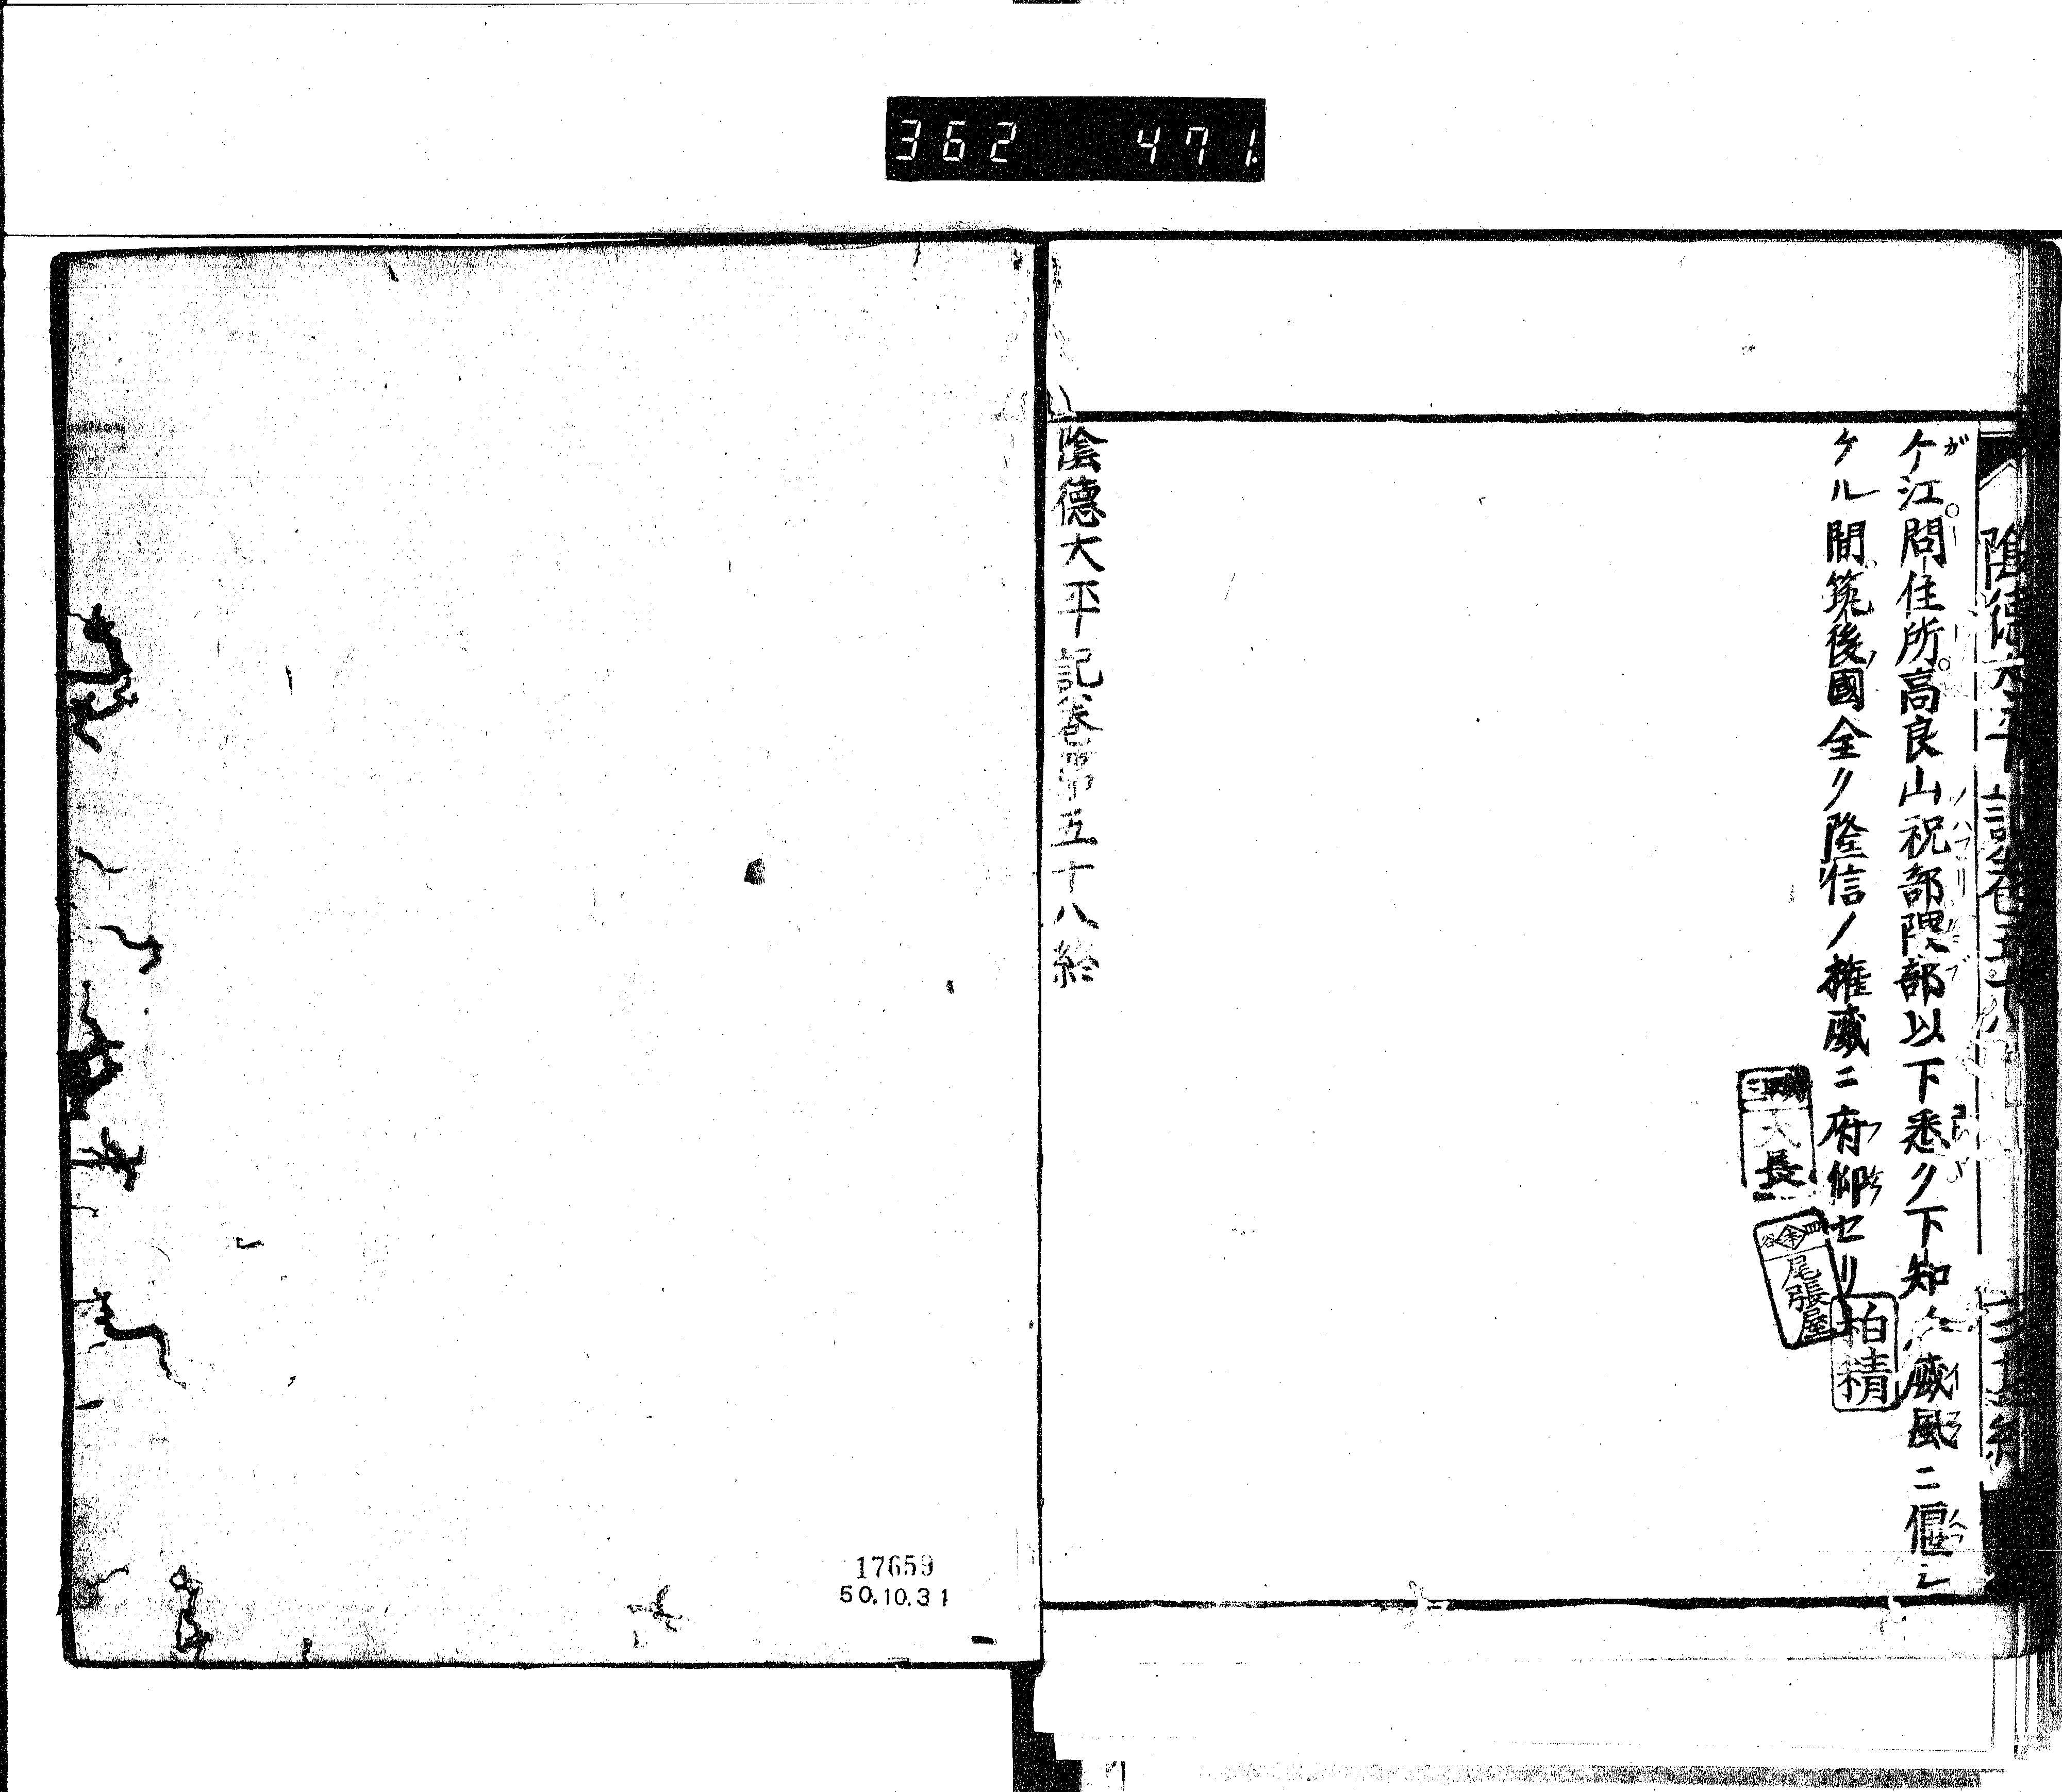 362 471
陰德太平記卷五十八
ケ江問住所高良山祝部隈部以下悉ク下知ノ威風ニ偃シ
ケル間筑後國全ク隆信ノ権威ニ府仰セリ
大長
尾張屋
柏精
陰德太平記卷第五十八終
17659
50.10.31